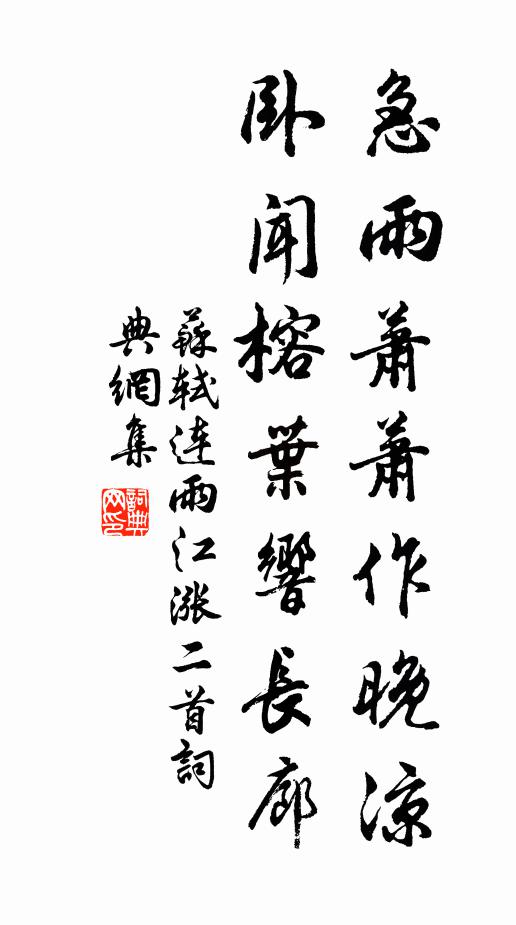 急雨蕭蕭作晚涼
卧聞榕葉響長廊
蘇軾連雨江漲二首詞
典網集
詞典
网印